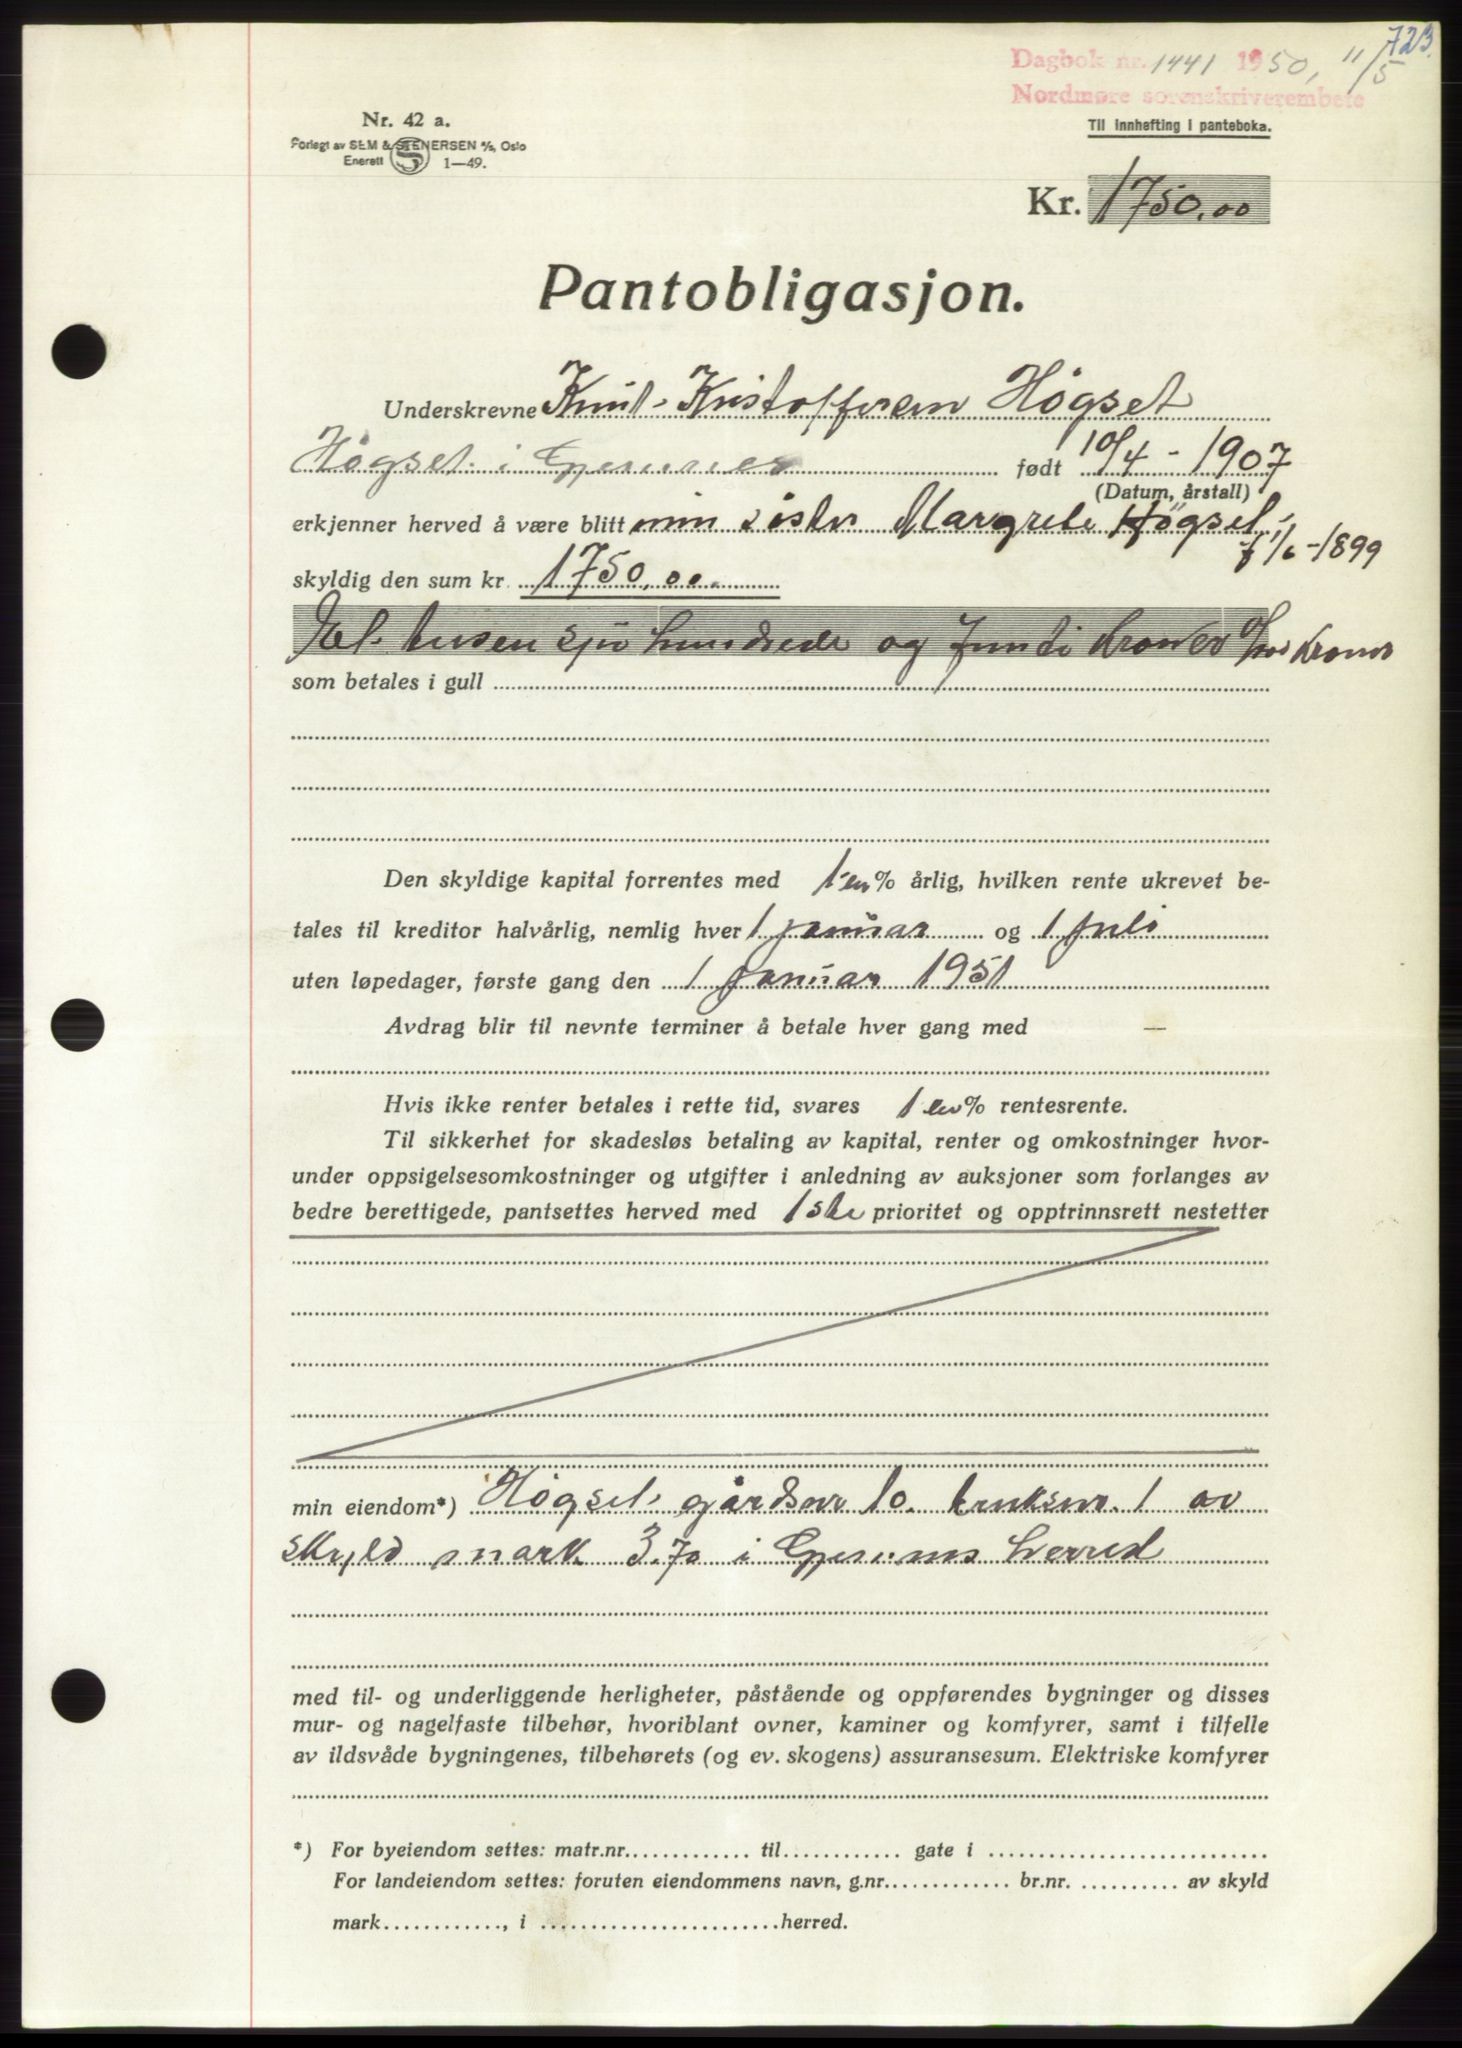 723.
Dagbok nr. 1441 1950, 11/5
Nordmøre sorenskriverembete
Til innhefting i panteboka.
Nr. 42 a.
Forlagt av SEM & STENERSEN A/S, Oslo
Enerett 1—49.
Kr. 1750.00
Pantobligasjon.
Underskrevne Knut Kristoffersen Høgset
Høgset i Gjemnes født 10/4 - 1907
(Datum, årstall)
erkjenner herved å være blitt min søster Margrete Høgset
f 1/6-1899
skyldig den sum kr. 1750.00.
Et tusen sju hundrede og femti kroner 0/00 kroner
som betales i gull
Den skyldige kapital forrentes med 1 en % årlig, hvilken rente ukrevet be-
tales til kreditor halvårlig, nemlig hver 1 januar og 1 juli
uten løpedager, første gang den 1 januar 1951
Avdrag blir til nevnte terminer å betale hver gang med —
Hvis ikke renter betales i rette tid, svares 1 en % rentesrente.
Til sikkerhet for skadesløs betaling av kapital, renter og omkostninger hvor-
under oppsigelsesomkostninger og utgifter i anledning av auksjoner som forlanges av
bedre berettigede, pantsettes herved med 1ste prioritet og opptrinnsrett nestetter
min eiendom*) Høgset gårdsnr 10. bruksnr. 1 av
skyld mark 3.70 i Gjemnes herred
med til- og underliggende herligheter, påstående og oppførendes bygninger og disses
mur- og nagelfaste tilbehør, hvoriblant ovner, kaminer og komfyrer, samt i tilfelle
av ildsvåde bygningenes, tilbehørets (og ev. skogens) assuransesum. Elektriske komfyrer
*) For byeiendom settes: matr.nr. til gate i
For landeiendom settes: foruten eiendommens navn, g.nr. br.nr. av skyld
mark , i herred.